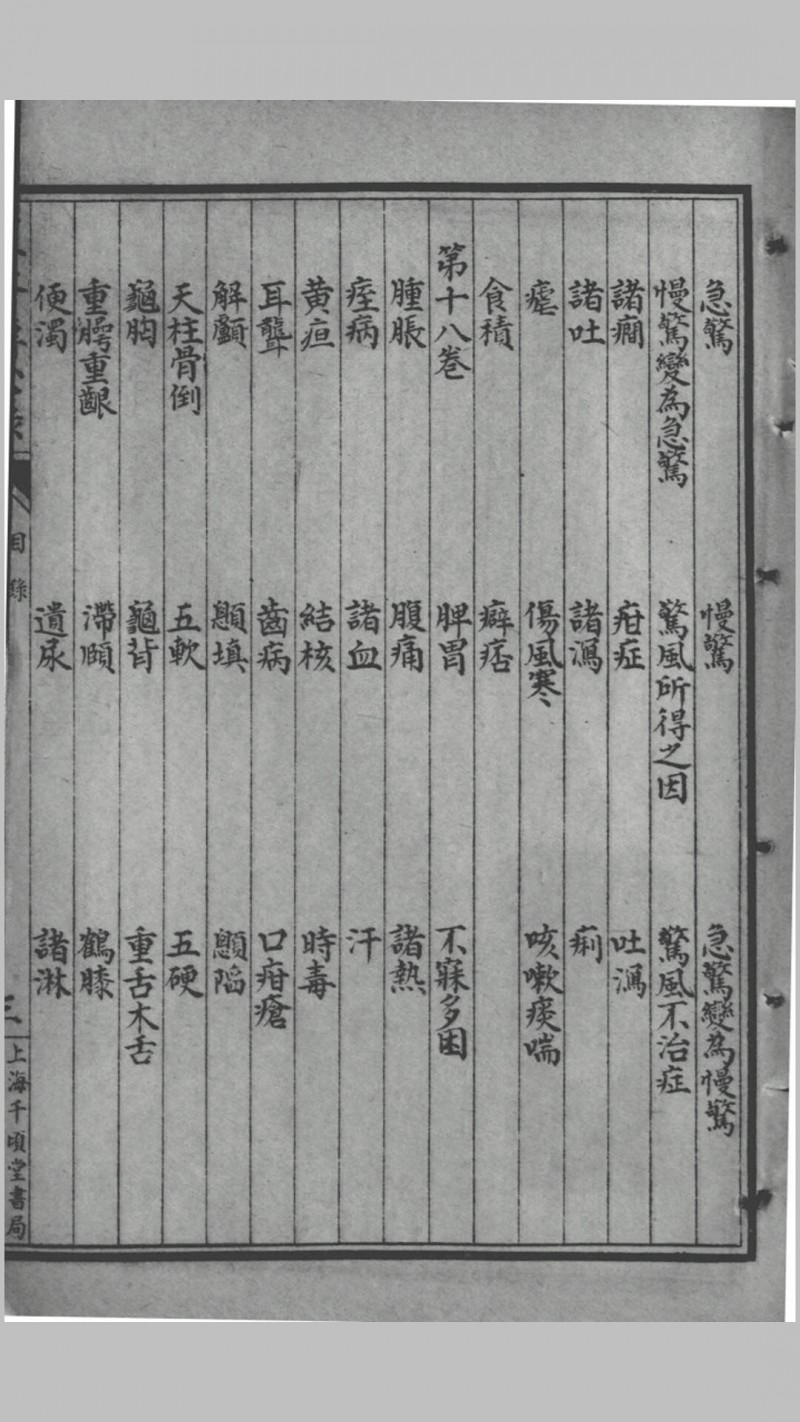 急驚 慢驚 急驚變為慢驚
慢驚變為急驚 驚風所得之因 驚風不治症
諸癇 疳症 吐瀉
諸吐 諸瀉 痢
瘧 傷風寒 咳嗽痰喘
食積 癖痞
第十八卷 脾胃 不寐多困
腫脹 腹痛 諸熱
痓病 諸血 汗
黃疸 結核 時毒
耳聾 齒病 口疳瘡
解顱 顖填 顖陷
天柱骨倒 五軟 五硬
龜胸 龜背 重舌木舌
重腭重齦 滯頤 鶴膝
便濁 遺尿 諸淋
目錄 三 上海千頃堂書局